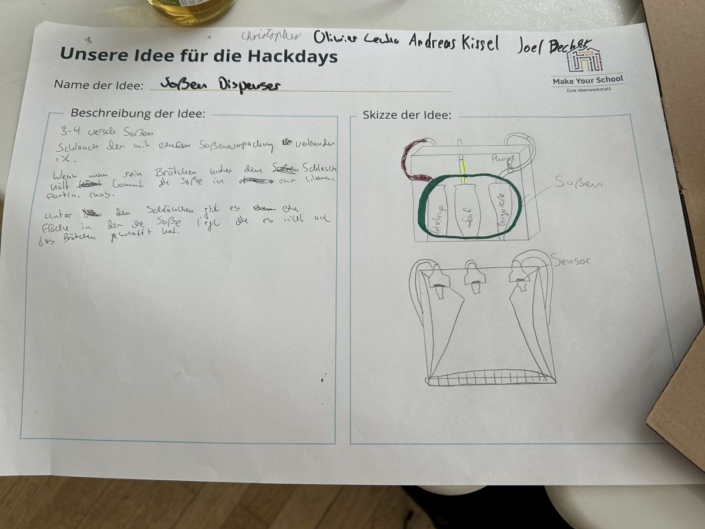 Christopher Olivier Andreas Kissel Joel Becher
Unsere Idee für die Hackdays
Make Your School
Eine Ideenwerkstatt
Name der Idee: Soßen Dispenser
Beschreibung der Idee:
3-4 versch Soßen
Schlauch der mit Soßenverpackung verbunden
ist.
Wenn man sein Brötchen unter dem Schlauch
hält kommt die Soße in
Portion raus.
unter den Schläuchen gibt es eine
Fläche in der die Soße liegt die es nicht auf
das Brötchen geschafft hat.
Skizze der Idee:
Pumpe
Soßen
Ketchup
Sensor